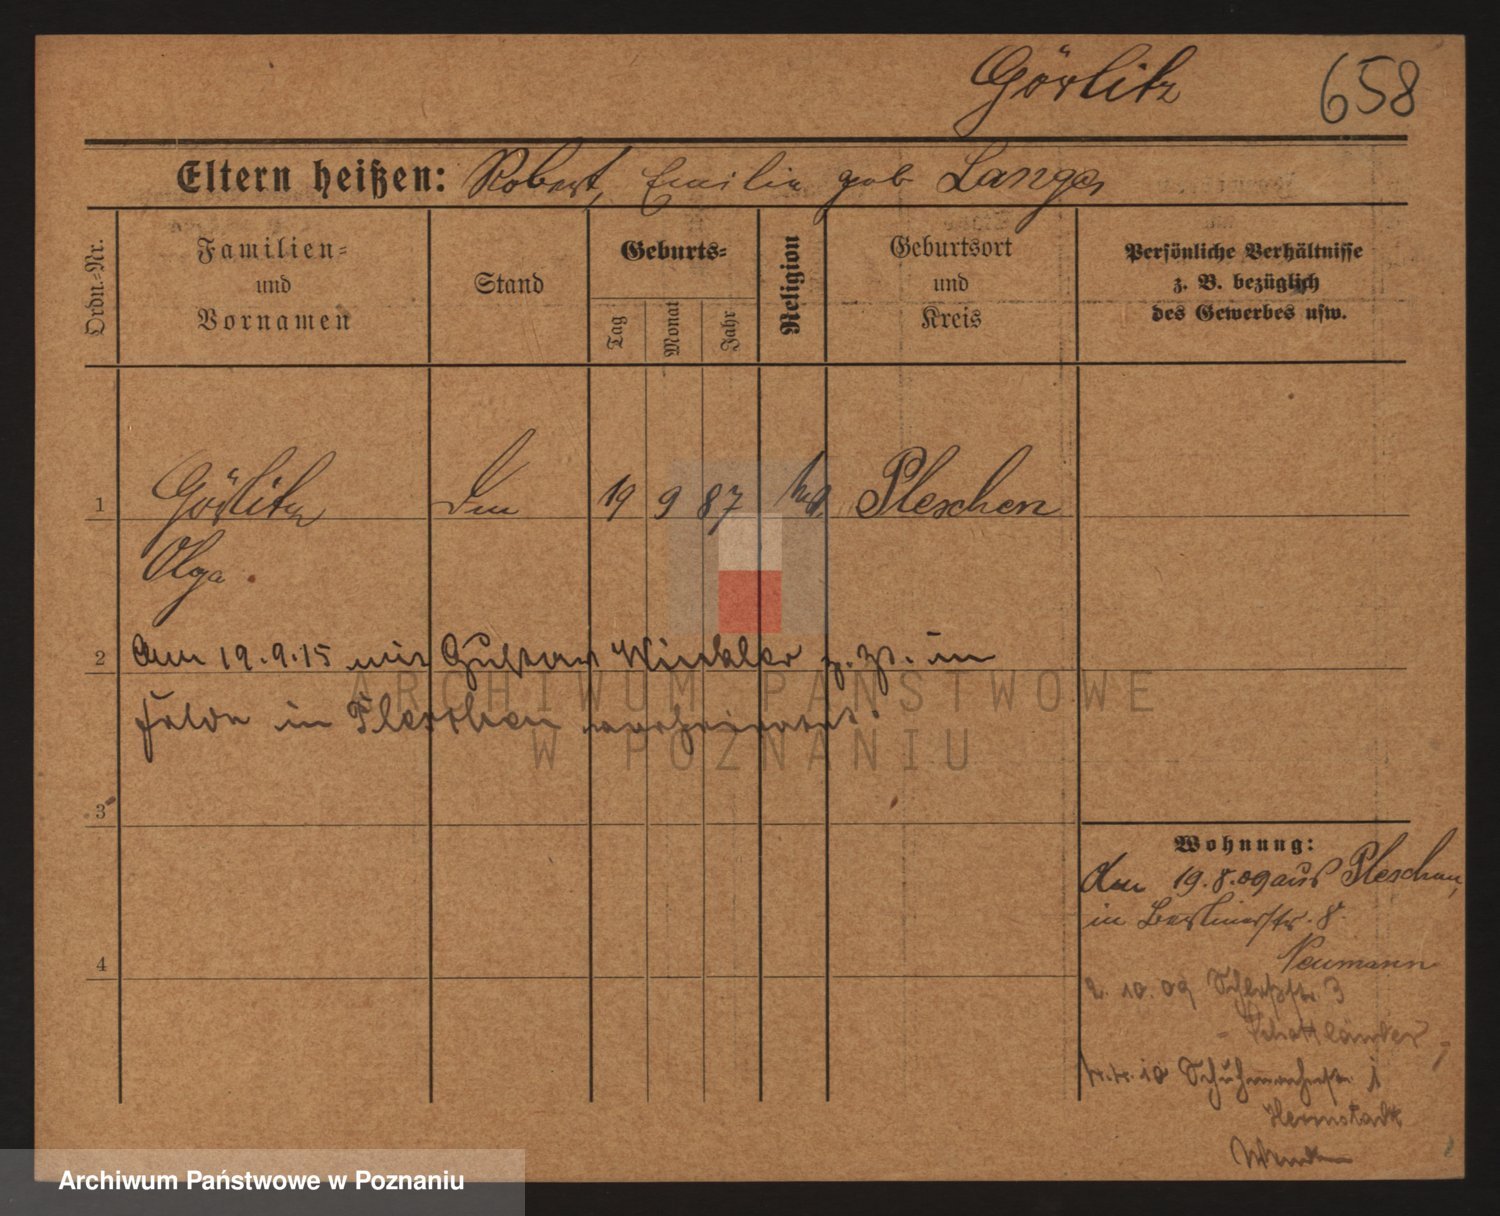 Görlitz 658
Eltern heißen: Robert, Emilie geb Lange,
Ordn.-Nr.
Familien-
und
Vornamen
Stand
Geburts-
Tag
Monat
Jahr
Religion
Geburtsort
und
Kreis
Persönliche Verhältnisse
z. B. bezüglich
des Gewerbes usw.
1 Görlitz 19 9 87 Pleschen
Olga
2 Am 19.9.15 mit Gustav Winkler z. Zt. im
Felde in Pleschen verheiratet.
ARCHIWUM PAŃSTWOWE
W POZNANIU
3
4
Wohnung:
den 19.8.09 aus Pleschen,
in Berlinerstr. 8
Neumann
2.10.09 Schloßstr. 3
Schottländer
10 Schuhmacherstr. 1
Hermstadt
Archiwum Państwowe w Poznaniu